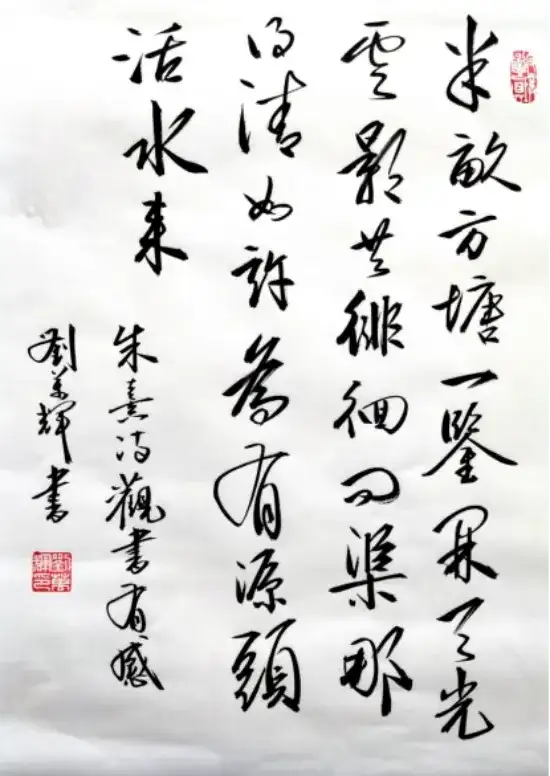 半畝方塘一鑒開天光
雲影共徘徊問渠那
得清如許為有源頭
活水來
朱熹詩觀書有感
劉萬輝書
劉萬輝印